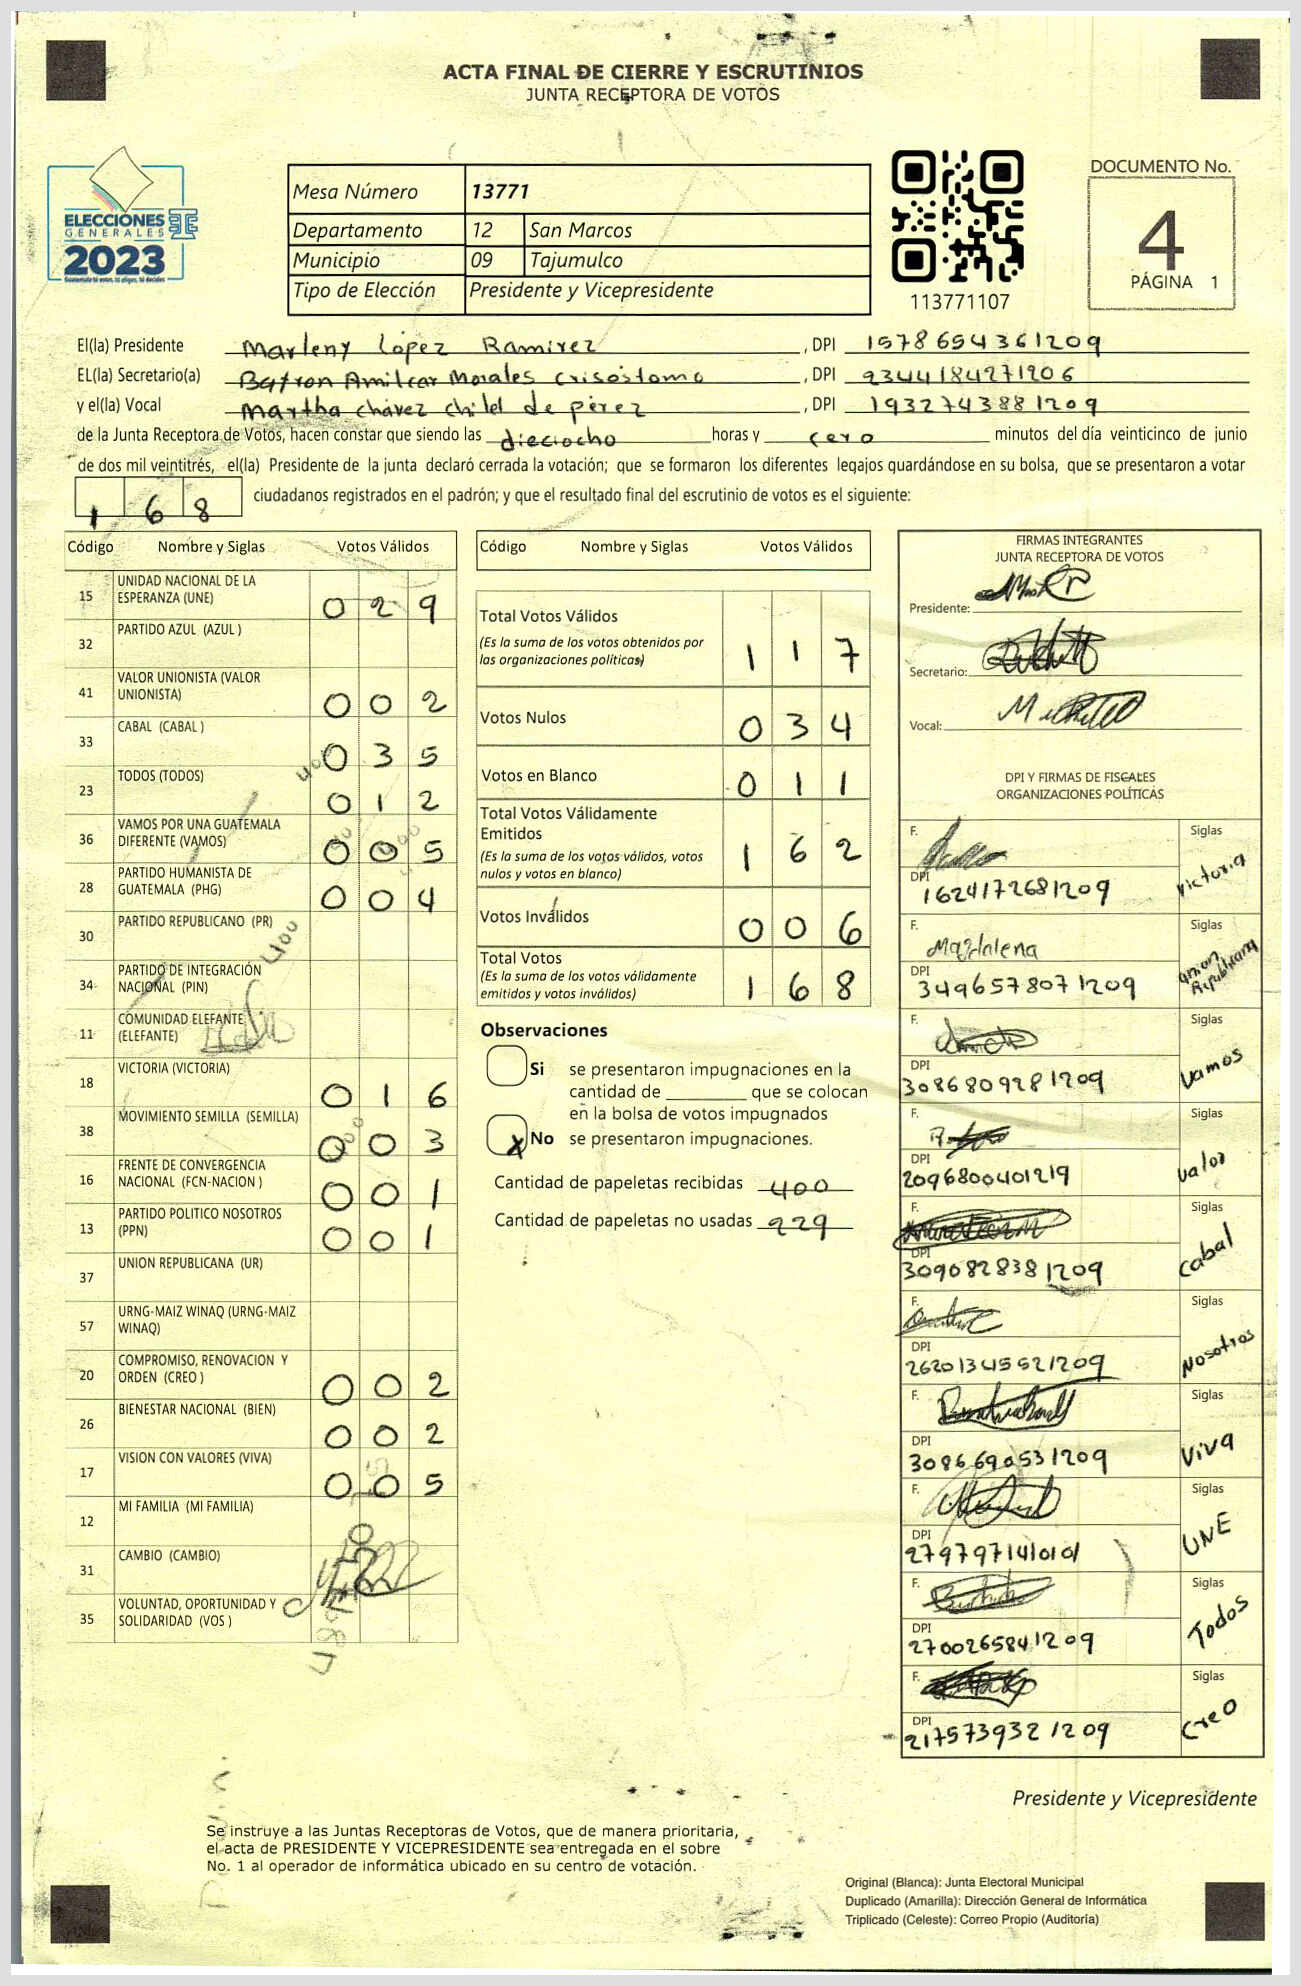 ACTA FINAL DE CIERRE Y ESCRUTINIOS
JUNTA RECEPTORA DE VOTOS
ELECCIONES
GENERALES
2023
Mesa Número 13771
Departamento 12 San Marcos
Municipio 09 Tajumulco
Tipo de Elección Presidente y Vicepresidente
113771107
DOCUMENTO No.
4
PÁGINA 1
El(la) Presidente Marleny López Ramirez , DPI 1578654361209
EL(la) Secretario(a) Amilcar Morales Crisóstomo , DPI 2344184271206
y el(la) Vocal Martha chávez chilel de pérez , DPI 1932743881209
de la Junta Receptora de Votos, hacen constar que siendo las dieciocho horas y cero minutos del día veinticinco de junio
de dos mil veintitrés, el(la) Presidente de la junta declaró cerrada la votación; que se formaron los diferentes legajos quardándose en su bolsa, que se presentaron a votar
168 ciudadanos registrados en el padrón; y que el resultado final del escrutinio de votos es el siguiente:
Código Nombre y Siglas Votos Válidos
15 UNIDAD NACIONAL DE LA ESPERANZA (UNE) 029
32 PARTIDO AZUL (AZUL )
41 VALOR UNIONISTA (VALOR UNIONISTA) 002
33 CABAL (CABAL ) 035
23 TODOS (TODOS) 012
36 VAMOS POR UNA GUATEMALA DIFERENTE (VAMOS) 005
28 PARTIDO HUMANISTA DE GUATEMALA (PHG) 004
30 PARTIDO REPUBLICANO (PR)
34 PARTIDO DE INTEGRACIÓN NACIONAL (PIN)
11 COMUNIDAD ELEFANTE (ELEFANTE)
18 VICTORIA (VICTORIA) 016
38 MOVIMIENTO SEMILLA (SEMILLA) 003
16 FRENTE DE CONVERGENCIA NACIONAL (FCN-NACION ) 001
13 PARTIDO POLITICO NOSOTROS (PPN) 001
37 UNION REPUBLICANA (UR)
57 URNG-MAIZ WINAQ (URNG-MAIZ WINAQ)
20 COMPROMISO, RENOVACION Y ORDEN (CREO ) 002
26 BIENESTAR NACIONAL (BIEN) 002
17 VISION CON VALORES (VIVA) 005
12 MI FAMILIA (MI FAMILIA)
31 CAMBIO (CAMBIO)
35 VOLUNTAD, OPORTUNIDAD Y SOLIDARIDAD (VOS )
Código Nombre y Siglas Votos Válidos
Total Votos Válidos 117
(Es la suma de los votos obtenidos por
las organizaciones políticas)
Votos Nulos 034
Votos en Blanco 011
Total Votos Válidamente
Emitidos 162
(Es la suma de los votos válidos, votos
nulos y votos en blanco)
Votos Inválidos 006
Total Votos 168
(Es la suma de los votos válidamente
emitidos y votos inválidos)
Observaciones
Si se presentaron impugnaciones en la
cantidad de ________ que se colocan
en la bolsa de votos impugnados
X No se presentaron impugnaciones.
Cantidad de papeletas recibidas 400
Cantidad de papeletas no usadas 229
FIRMAS INTEGRANTES
JUNTA RECEPTORA DE VOTOS
Presidente:
Secretario:
Vocal:
DPI Y FIRMAS DE FISCALES
ORGANIZACIONES POLÍTICAS
F. Siglas
DPI 1624172681209 victoria
F. Magdalena Siglas
DPI 3496578071209 union Republicana
F. Siglas
DPI 3086809281209 Vamos
F. Siglas
DPI 2096800401219 valor
F. Siglas
DPI 3090828381209 Cabal
F. Siglas
DPI 2620134551209 Nosotros
F. Siglas
DPI 3086690531209 Viva
F. Siglas
DPI 2797971410101 UNE
F. Siglas
DPI 2700265841209 Todos
F. Siglas
DPI 2175739321209 Creo
Presidente y Vicepresidente
Se instruye a las Juntas Receptoras de Votos, que de manera prioritaria,
el acta de PRESIDENTE Y VICEPRESIDENTE sea entregada en el sobre
No. 1 al operador de informática ubicado en su centro de votación.
Original (Blanca): Junta Electoral Municipal
Duplicado (Amarilla): Dirección General de Informática
Triplicado (Celeste): Correo Propio (Auditoría)